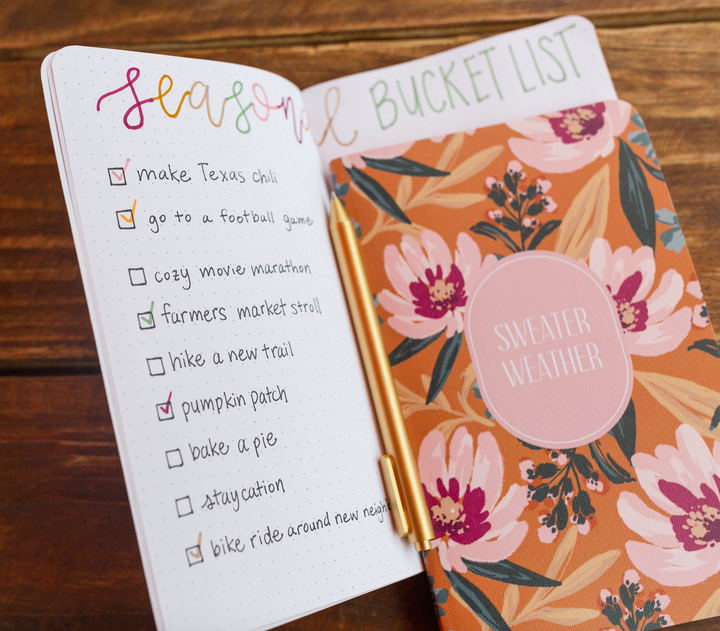 seasonal BUCKET LIST
make Texas chili
go to a football game
cozy movie marathon
farmers market stroll
hike a new trail
pumpkin patch
bake a pie
staycation
bike ride around new
SWEATER
WEATHER